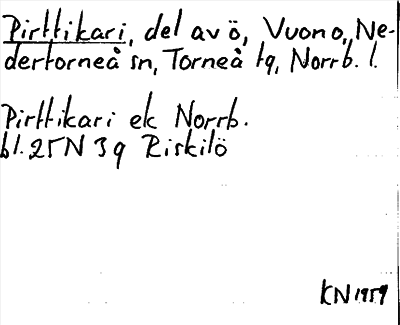 Pirttikari, del av ö, Vuono, Ne-
dertorneå sn, Torneå tg, Norrb. l.
Pirttikari ek Norrb.
bl. 25N 3g Riskilö
KN 1959